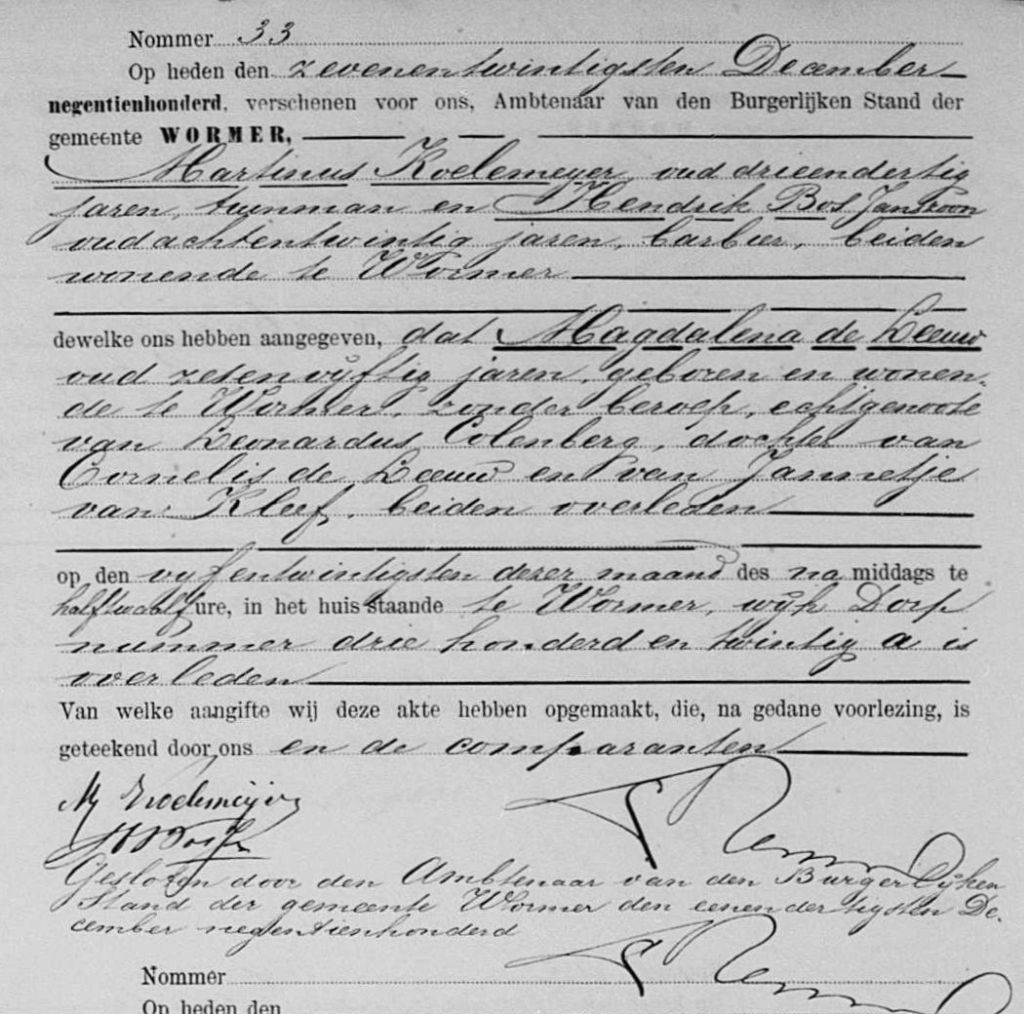 Nommer 33
Op heden den zevenentwintigsten December
negentienhonderd, verschenen voor ons, Ambtenaar van den Burgerlijken Stand der
gemeente WORMER,
Martinus Koelemeyer, oud drieendertig
jaren, tuinman en Hendrik Bos Janszoon
oud achtentwintig jaren, barbier, beiden
wonende te Wormer
dewelke ons hebben aangegeven, dat Magdalena de Leeuw
oud zesenvijftig jaren, geboren en wonen-
de te Wormer, zonder beroep, echtgenoote
van Leonardus Colenberg, dochter van
Cornelis de Leeuw en van Jannetje
van Kleef, beiden overleden
op den vijfentwintigsten dezer maand des na middags te
half twaalf ure, in het huis staande te Wormer, wijk Dorp
nummer drie honderd en twintig a is
overleden
Van welke aangifte wij deze akte hebben opgemaakt, die, na gedane voorlezing, is
geteekend door ons en de comparanten
M Koelemeijer
H Bos Jz
Gesloten door den Ambtenaar van den Burgerlijken
Stand der gemeente Wormer den eenendertigsten De-
cember negentienhonderd
Nommer
Op heden den